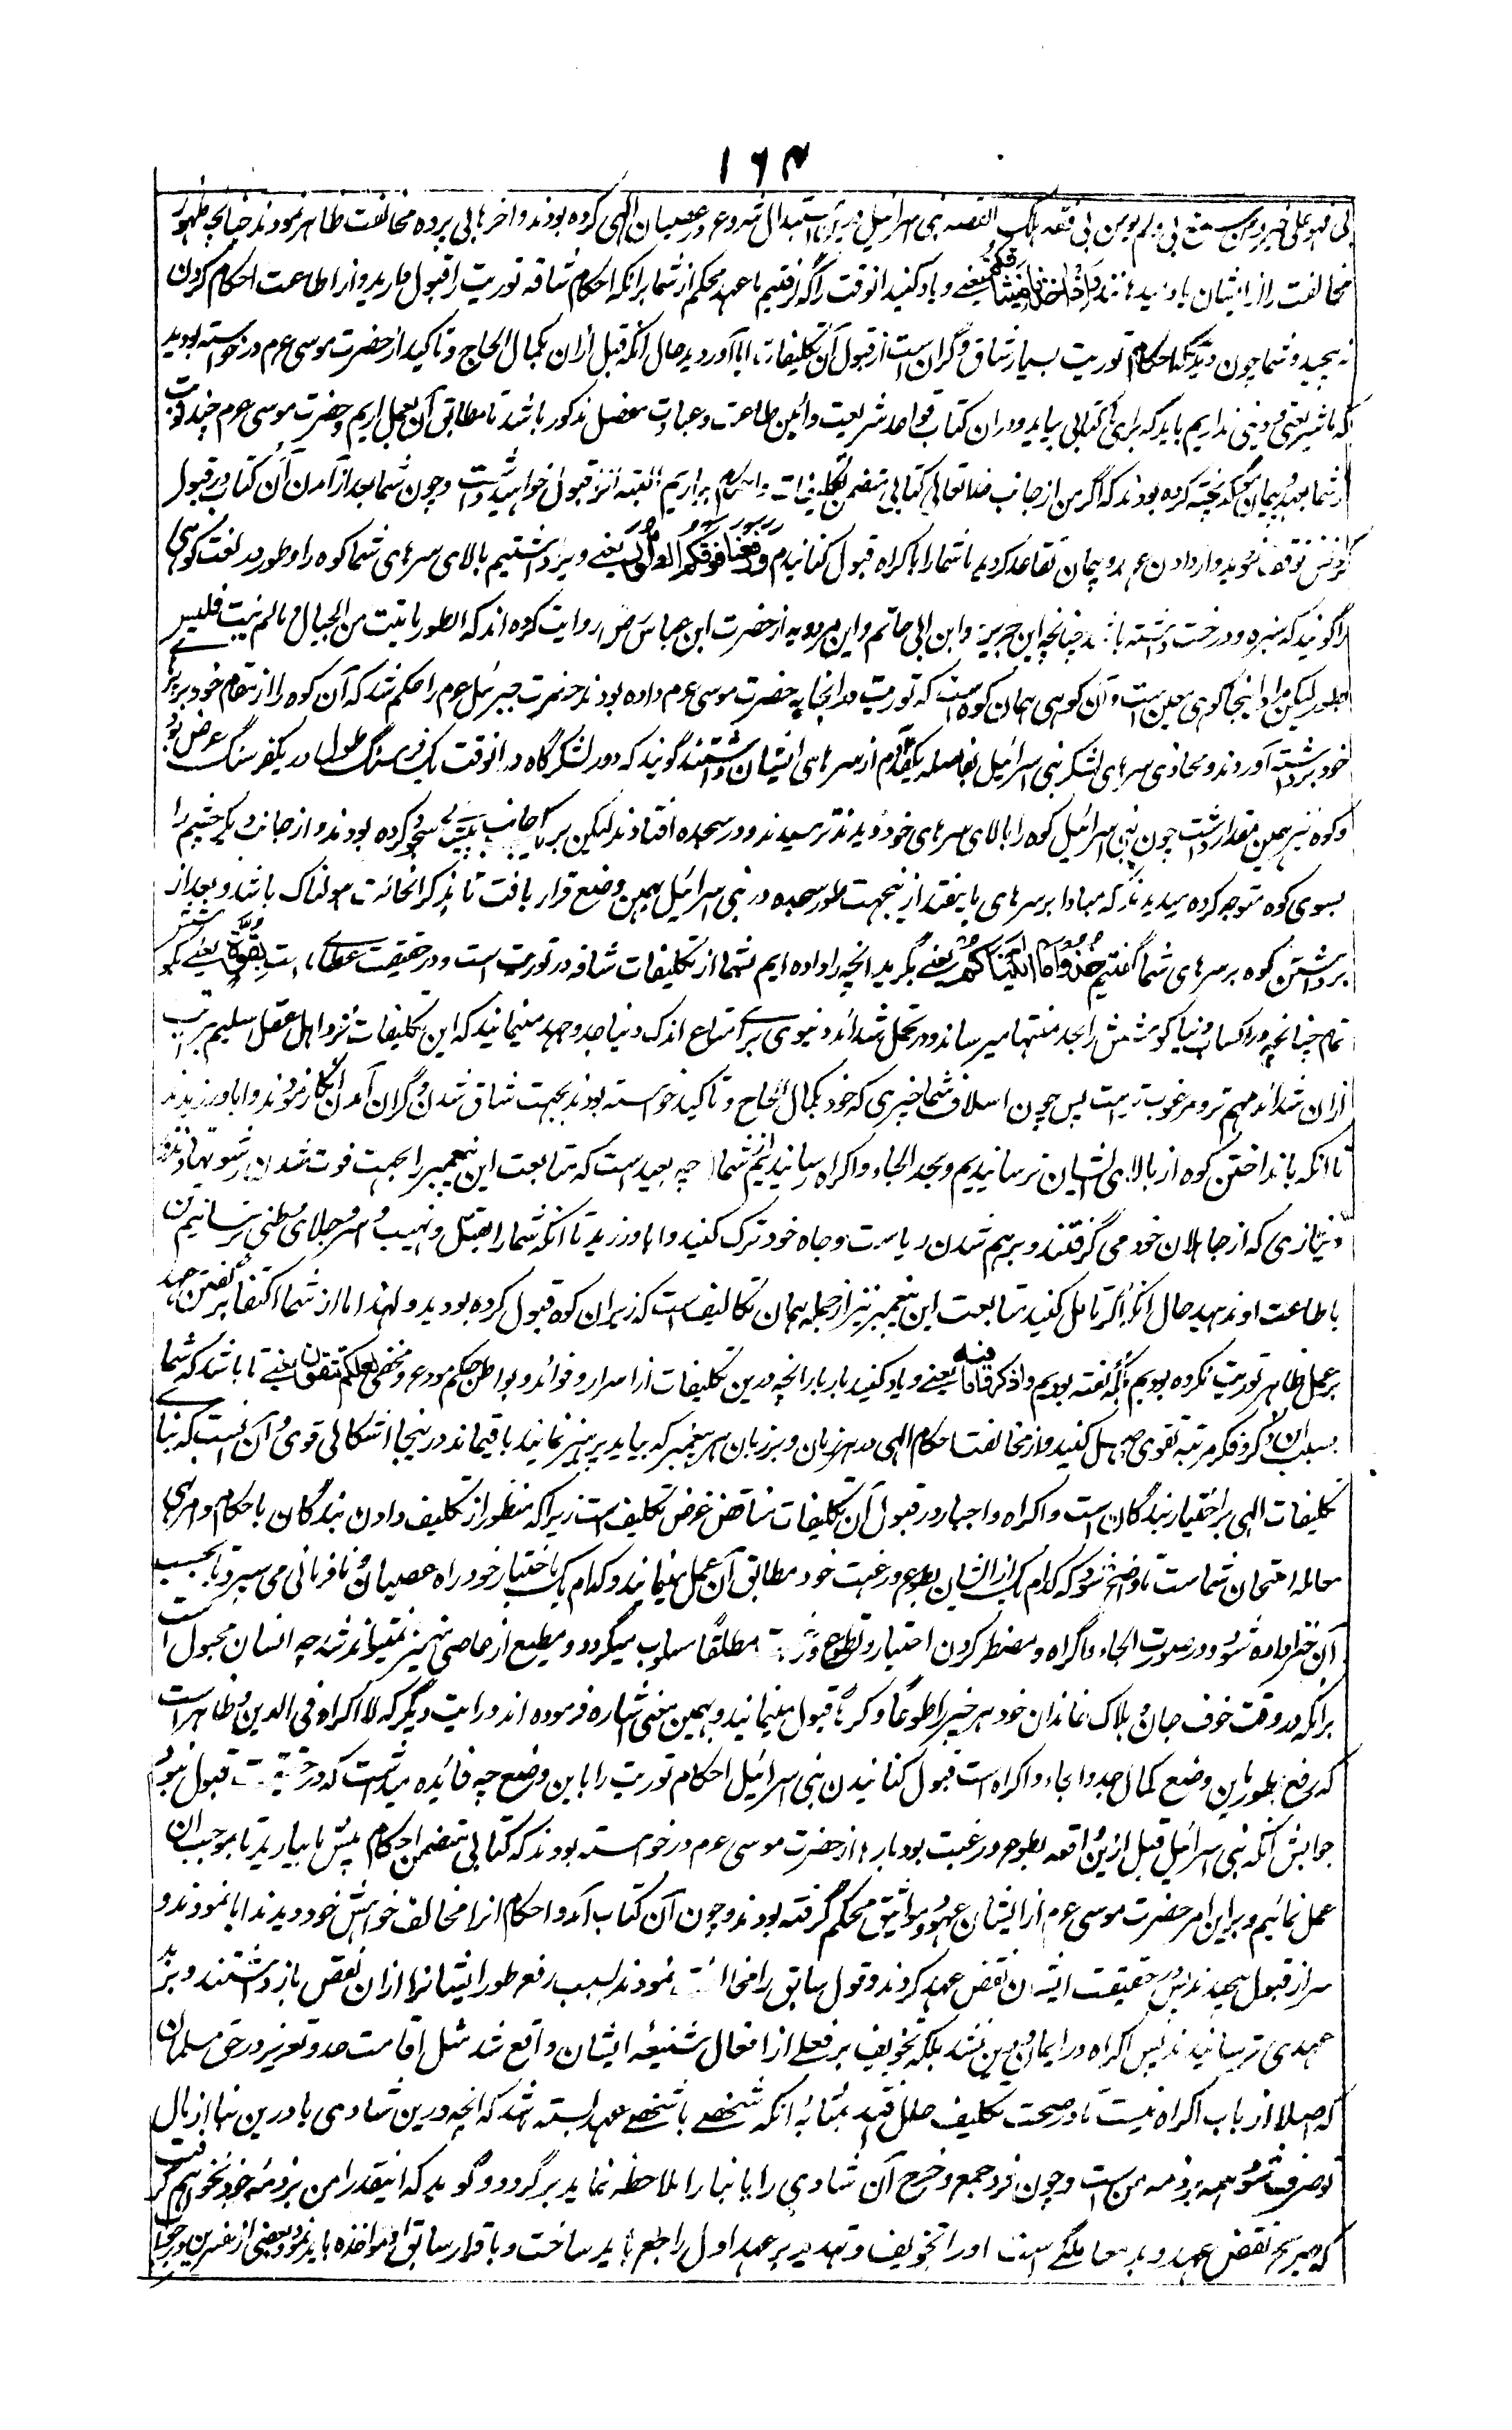 ۱۶۳
بی فهو علی خیر و من سمع بی و لم یومن بی فقد هلک القصه بنی اسرائیل در استبدال شروع در عصیان الهی کرده بودند و آخرها بی پرده مخالفت ظاهر نمودند چنانچه ظهور
مخالفت را از ایشان یاد وَإِذْ أَخَذْنَا مِيثَاقَكُمْ یعنے و یاد کنید انوقت را که گرفتیم ما عهد محکم از شما برانکه احکام شاقه توریت را قبول دارید و از اطاعت احکام گردن
نه پیچید و شما چون دیدید که احکام توریت بسیار شاق و گران است از قبول آن تکلیفات ابا آوردید حال انکه قبل ازان بکمال الحاح و تاکید از حضرت موسی عم درخواسته بودید
که ما شریعتی و دینی نداریم باید که برای ما کتابی بیاید و دران کتاب قواعد شریعت و آئین طاعت و عبادت مفصل مذکور باشد تا مطابق آن بعمل آریم و حضرت موسی عم چند نوبت
از شما عهد و پیمان موکد پخته کرده بودند که اگر من از جانب خدا تعالی کتابی متضمن تکلیفات و احکام بیاریم البته انرا قبول خواهید داشت و چون شما بعد از آمدن آن کتاب در قبول
کردنش توقف نمودید و از دادن عهد و پیمان تقاعد کردید ما شما را باکراه قبول کنانیدیم وَرَفَعْنَا فَوْقَكُمُ الطُّورَ یعنے و برداشتیم بالای سرهای شما کوه را و طور در لغت کوهی
را گویند که سبزه و درخت داشته باشد چنانچه ابن جریر و ابن ابی حاتم و ابن مردویه از حضرت ابن عباس رض روایت کرده اند که الطور ما نبت من الجبال و ما لم ینبت فلیس
بطور لیکن مراد اینجا کوهی معین است و آن کوهی همان کوه است که توریت در انجا به حضرت موسی عم داده بودند حضرت جبرئیل عم را حکم شد که آن کوه را از مقام خود بر پر
خود برداشته آوردند و محاذی سرهای لشکر بنی اسرائیل بفاصله یکقد آدم از سرهای ایشان داشتند گویند که دور لشکرگاه در انوقت یک فرسنگ طول در یکفرسنگ عرض بود
و کوه نیز همین مقدار داشت چون بنی اسرائیل کوه را بالای سرهای خود دیدند ترسیدند و در سجده افتادند لیکن بر یکجانب پیشانی سجود کرده بودند و از جانب دیگر چشم را
بسوی کوه متوجه کرده میدیدند که مبادا بر سرهای ما بیفتد از ینجهت طور سجده در بنی اسرائیل بهمین وضع قرار یافت تا مذکر انحالت هولناک باشد و بعد از
برداشتن کوه بر سرهای شما گفتیم خُذُوا مَا آتَيْنَاكُمْ یعنے بگیرید انچه را داده ایم بشما از تکلیفات شاقه در توریت است و در حقیقت عطای است بِقُوَّةٍ یعنے بکوشش
تمام چنانچه در اکساب دنیا کوشش را بحد منتها میرسانند و در تحمل شدائد دنیوی برای متاع اندک دنیا جد و جهد مینمایند که این تکلیفات نزد اهل عقل سلیم بمراتب
ازان شدائد مهم تر و مرغوب تر است پس چون اسلاف شما چیزی که خود بکمال الحاح و تاکید خواسته بودند بجهت شاق شدن و گران آمدن انکار نمودند و ابا ورزیدند
تا انکه باانداختن کوه از بالای ایشان ترسانیدیم و بحد الجاء و اکراه رسانیدیم از شما چه بعید است که متابعت این پیغمبر را بجهت فوت شدن رشوتها و نذور
و نیازی که از جاهلان خود می گرفتند و برهم شدن ریاست و جاه خود ترک کنید و ابا ورزید تا انکه شما را بقتل و نهیب و اسر و جلای وطنی نرسانیم تن
باطاعت او ندهید حال انکه اگر تامل کنید متابعت این پیغمبر نیز از جمله همان تکالیف است که زیران کوه قبول کرده بودید و لهذا ما از شما اکتفا بر گفتن عهد
بر عمل ظاهر توریت نکرده بودیم بلکه گفته بودیم وَاذْكُرُوا مَا فِيهِ یعنے و یاد کنید بار بار انچه درین تکلیفات از اسرار و فوائد و بواطن حکم مودع و مخفی لَعَلَّكُمْ تَتَّقُونَ یعنے تا باشد که شما
بسبب ان ذکر و فکر مرتبه تقوی حاصل کنید و از مخالفت احکام الهی در هر زبان و بر زبان هر پیغمبر که بیاید پرهیز نمائید باقیماند در ینجا اشکالی قوی و آن انست که بنای
تکلیفات الهی بر اختیار بندگان است و اکراه و اجبار در قبول آن تکلیفات مناقض غرض تکلیف است زیراکه منظور از تکلیف دادن بندگان باحکام و امرهای
معامله امتحان شماست تا واضح شود که کدام یک از ایشان بطوع و رغبت خود مطابق آن عمل مینمایند و کدام یک باختیار خود راه عصیان و نافرمانی می سپرد تا بحسب
آن جزا داده شود و در صورت الجاء و اکراه و مضطر کردن اختیار و تطوع و رغبت مطلقًا مسلوب میگردد و مطیع از عاصی متمیز نمیتواند شد چه انسان مجبول است
برانکه در وقت خوف جان و هلاک خاندان خود هر چیز را طوعًا و کرهًا قبول مینماید و بهمین معنی اشاره فرموده اند در آیت دیگر که لا اکراه فی الدین و ظاهر است
که رفع طور باین وضع کمال جد و الجاء و اکراه است قبول کنانیدن بنی اسرائیل احکام توریت را باین وضع چه فائده میداشت که در حقیقت قبول نبود
جوابش آنکه بنی اسرائیل قبل ازین واقعه بطوع و رغبت بود بارها از حضرت موسی عم درخواسته بودند که کتابی متضمن احکام پیش ما بیارید تا بموجب ان
عمل نمائیم و براین امر حضرت موسی عم از ایشان عهود و مواثیق محکم گرفته بودند و چون آن کتاب آمد و احکام انرا مخالف خواهش خود دیدند ابا نمودند و
سر از قبول پیچیدند پس در حقیقت ایشان نقض عهد کردند و قول سابق را مخالفت نمودند بسبب رفع طور ایشانرا ازان نقض باز داشتند و بر بد
عهدی ترسانیدند پس اکراه در ایمان و دین نشد بلکه تخویف بر فعلے از افعال شنیعه ایشان واقع شد مثل اقامت حد و تعزیر در حق مسلمان
که اصلا از باب اکراه نیست تا در صحت تکلیف خلل افتد بمثابه انکه شخصے با شخصے عهد بسته شد که انچه درین شادی یا درین بنا از مال
تو صرف شود همه بر ذمه من است و چون فرد جمع و خرچ آن شادی را یا بنا را ملاحظه نماید برگردد و گوید که اینقدر را من بر ذمه خود نخواهم گرفت
که صریح نقض عهد و بدمعاملگے است او را بتخویف و تهدید بر عهد اول راجع باید ساخت و باقرار سابق او مواخذه باید نمود و بعضی از مفسرین در جواب